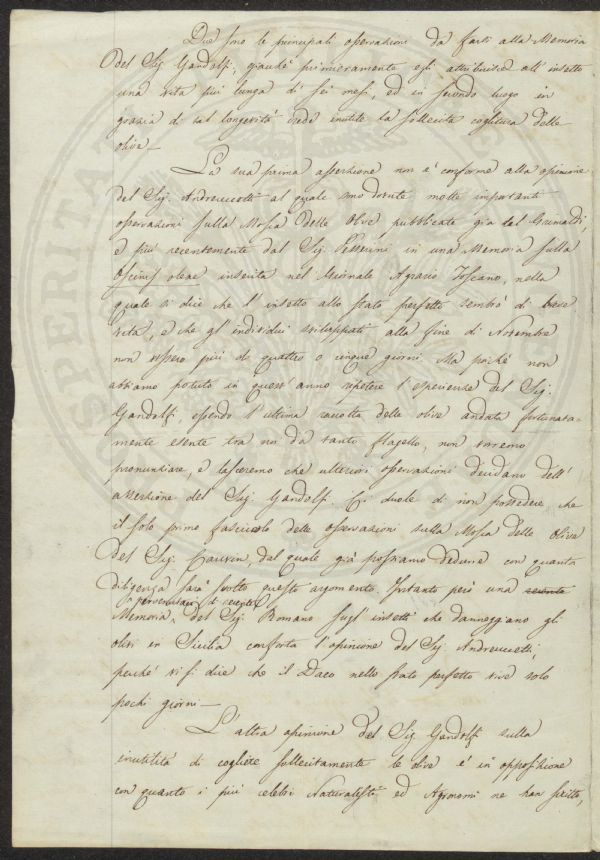 Due sono le principali osservazioni da farsi alla Memoria
del Sig. Gandolfi; giacchè primieramente egli attribuisce all'insetto
una vita più lunga di sei mesi, ed in secondo luogo in
grazia di tal longevità crede inutile la sollecita coglitura delle
olive —
La sua prima asserzione non è conforme alla opinione
del Sig. Andreuccetti al quale sono dovute molte importanti
osservazioni sulla Mosca delle Olive pubblicate già dal Grimaldi,
e più recentemente dal Sig. Passerini in una Memoria sulla
Oscinis oleae inserita nel Giornale Agrario Toscano, nella
quale si dice che l'insetto allo stato perfetto sembrò di breve
vita, e che gl'individui sviluppati alla fine di Novembre
non vissero più di quattro o cinque giorni. Ma poichè non
abbiamo potuto in quest'anno ripetere l'esperienze del Sig.
Gandolfi, essendo l'ultima raccolta delle olive andata fortunata-
mente esente tra noi da tanto flagello, non vorremo
pronunziare, e lasceremo che ulteriori osservazioni decidano dell'
asserzione del Sig. Gandolfi. Ci duole di non possedere che
il solo primo fascicolo delle osservazioni sulla Mosca delle Olive
del Sig. dal quale già possiamo dedurre con quanta
diligenza sarà svolto questo argomento. Intanto però una recente
pervenutaci di recente
Memoria del Sig. Romano sugl'insetti che danneggiano gli
olivi in Sicilia conforta l'opinione del Sig. Andreuccetti,
perchè vi si dice che il Daco nello stato perfetto vive solo
pochi giorni —
L'altra opinione del Sig. Gandolfi sulla
inutilità di cogliere sollecitamente le olive è in opposizione
con quanto i più celebri Naturalisti ed Agronomi ne han scritto,